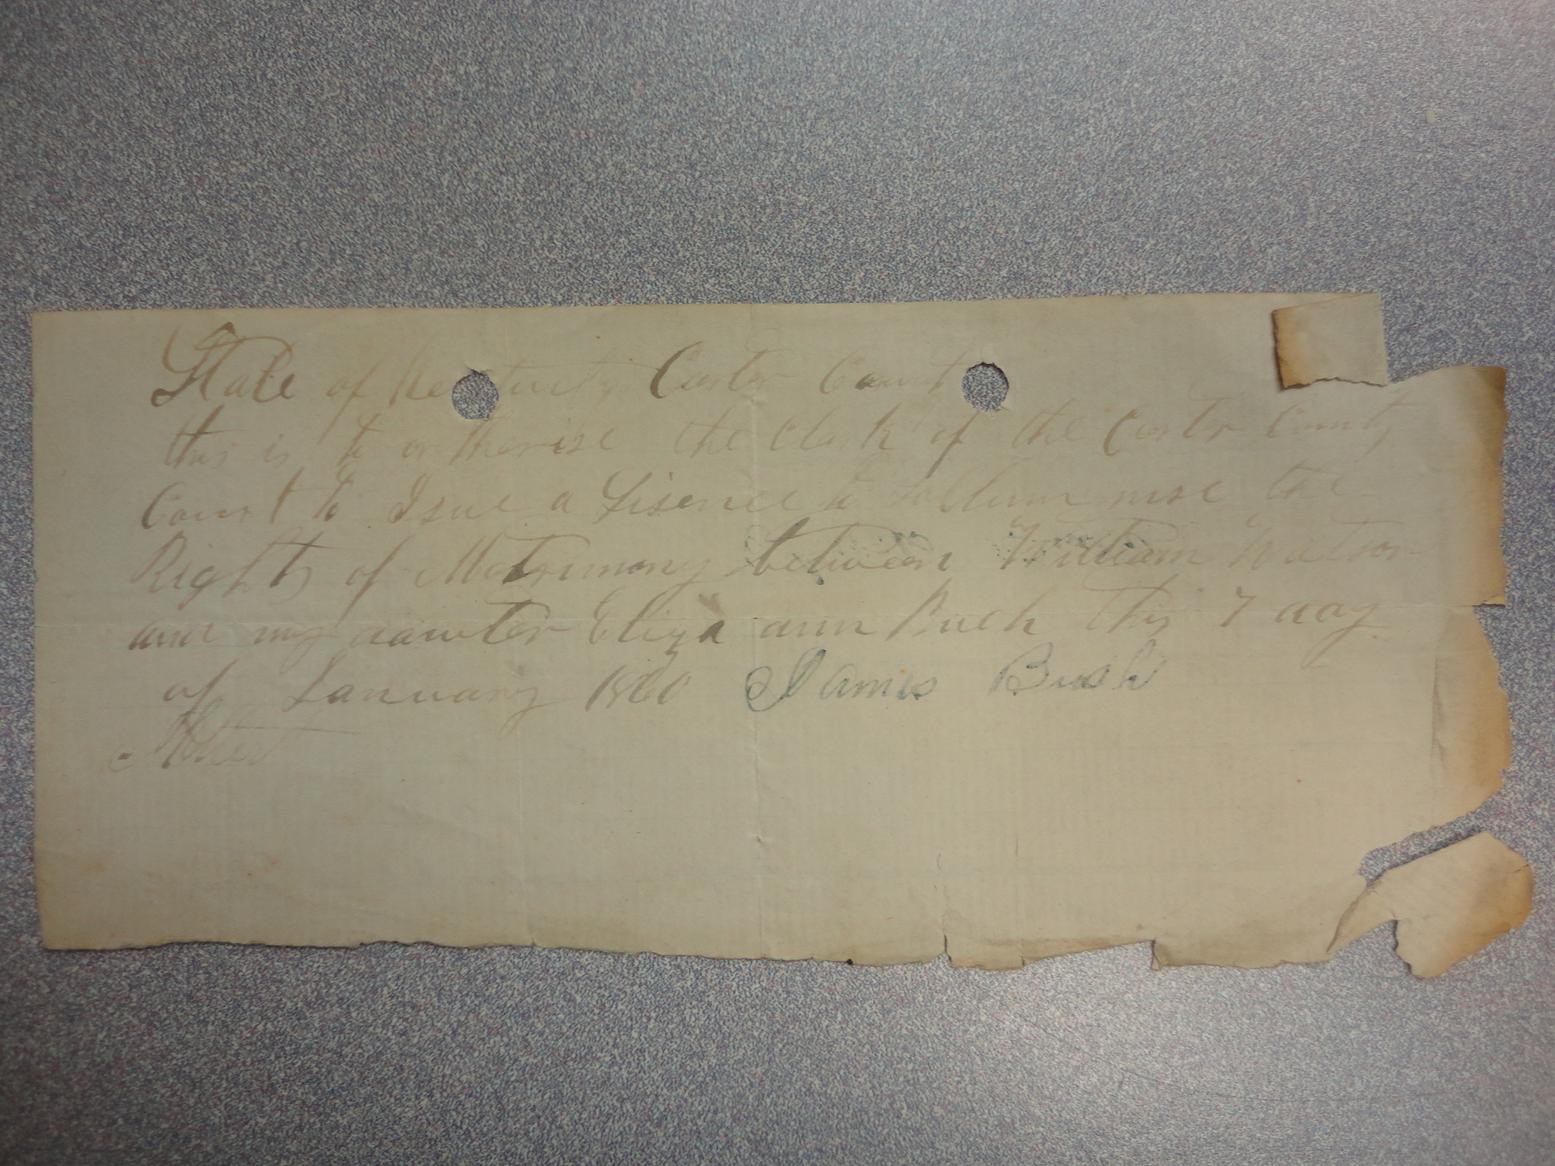 State of Kentucky Carter County
this is to ortherise the Clark of the Carter County
Court to Isue a Lisence to Sollumnise the
Rights of Matrimony between William Watson
and my dawter Eliza ann Bush this 7 day
of January 1860 James Bush
Attest